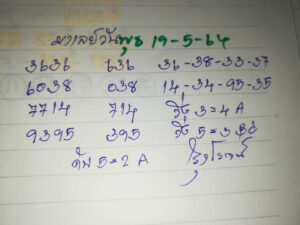 มาเลย์วันพุธ 19-5-64
3636 636 36-38-33-37
6038 038 14-34-95-35
7714 714 วิ่ง 3=4 A
9395 395 วิ่ง 5=3
ดับ 5=2 A